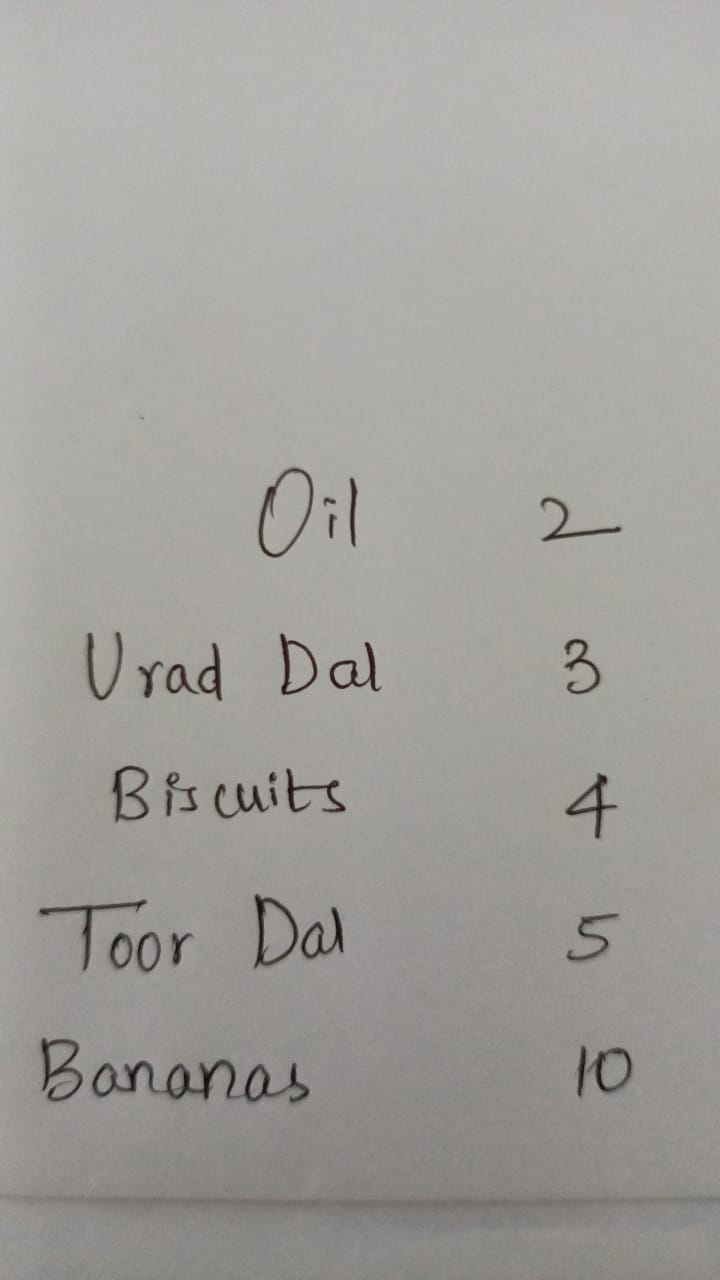 Oil 2
Urad Dal 3
Biscuits 4
Toor Dal 5
Bananas 10